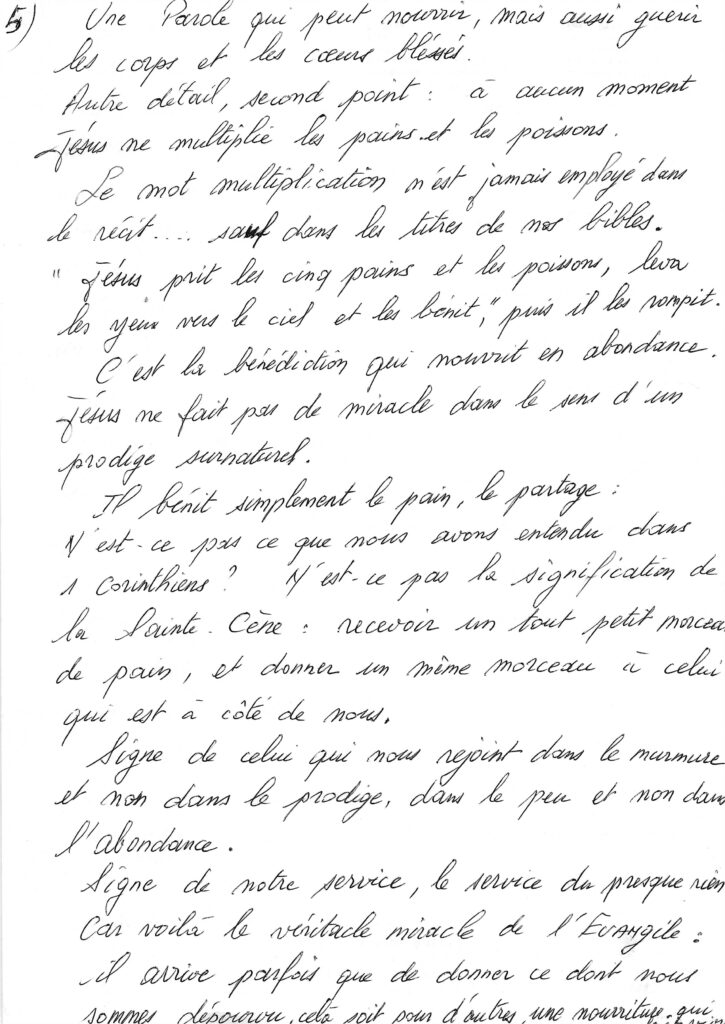 5) Une Parole qui peut nourrir, mais aussi guérir
les corps et les cœurs bléssés.
Autre détail, second point : à aucun moment
Jésus ne multiplie les pains et les poissons.
Le mot multiplication n'est jamais employé dans
le récit.... sauf dans les titres de nos bibles.
" Jésus prit les cinq pains et les poissons, leva
les yeux vers le ciel et les bénit", puis il les rompit.
C'est la bénédiction qui nourrit en abondance.
Jésus ne fait pas de miracle dans le sens d'un
prodige surnaturel.
Il bénit simplement le pain, le partage :
N'est-ce pas ce que nous avons entendu dans
1 Corinthiens ? N'est-ce pas la signification de
la Sainte-Cène : recevoir un tout petit morcea
de pain, et donner un même morceau à celui
qui est à côté de nous.
Signe de celui qui nous rejoint dans le murmure
et non dans le prodige, dans le peu et non dans
l'abondance.
Signe de notre service, le service du presque rien
Car voilà le véritacle miracle de l'EVANgile :
il arrive parfois que de donner ce dont nous
sommes dépourvu, celà soit pour d'autres, une nourriture, qui